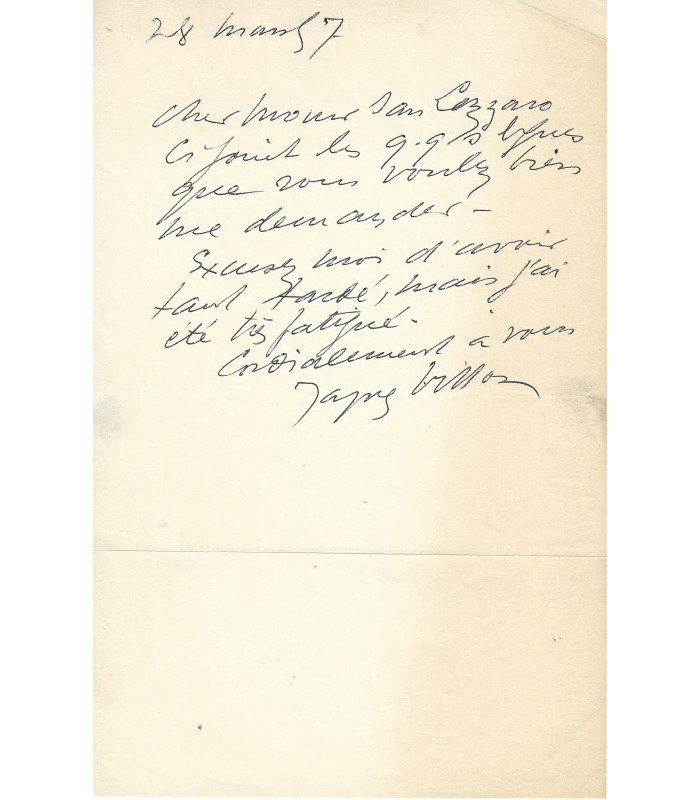 28 mars 57
Cher Monsieur San Lazzaro
Ci joint les q.q.s lignes
que vous voulez bien
me demander -
Excusez moi d'avoir
tant tardé, mais j'ai
été très fatigué.
Cordialement à vous
Jacques Villon